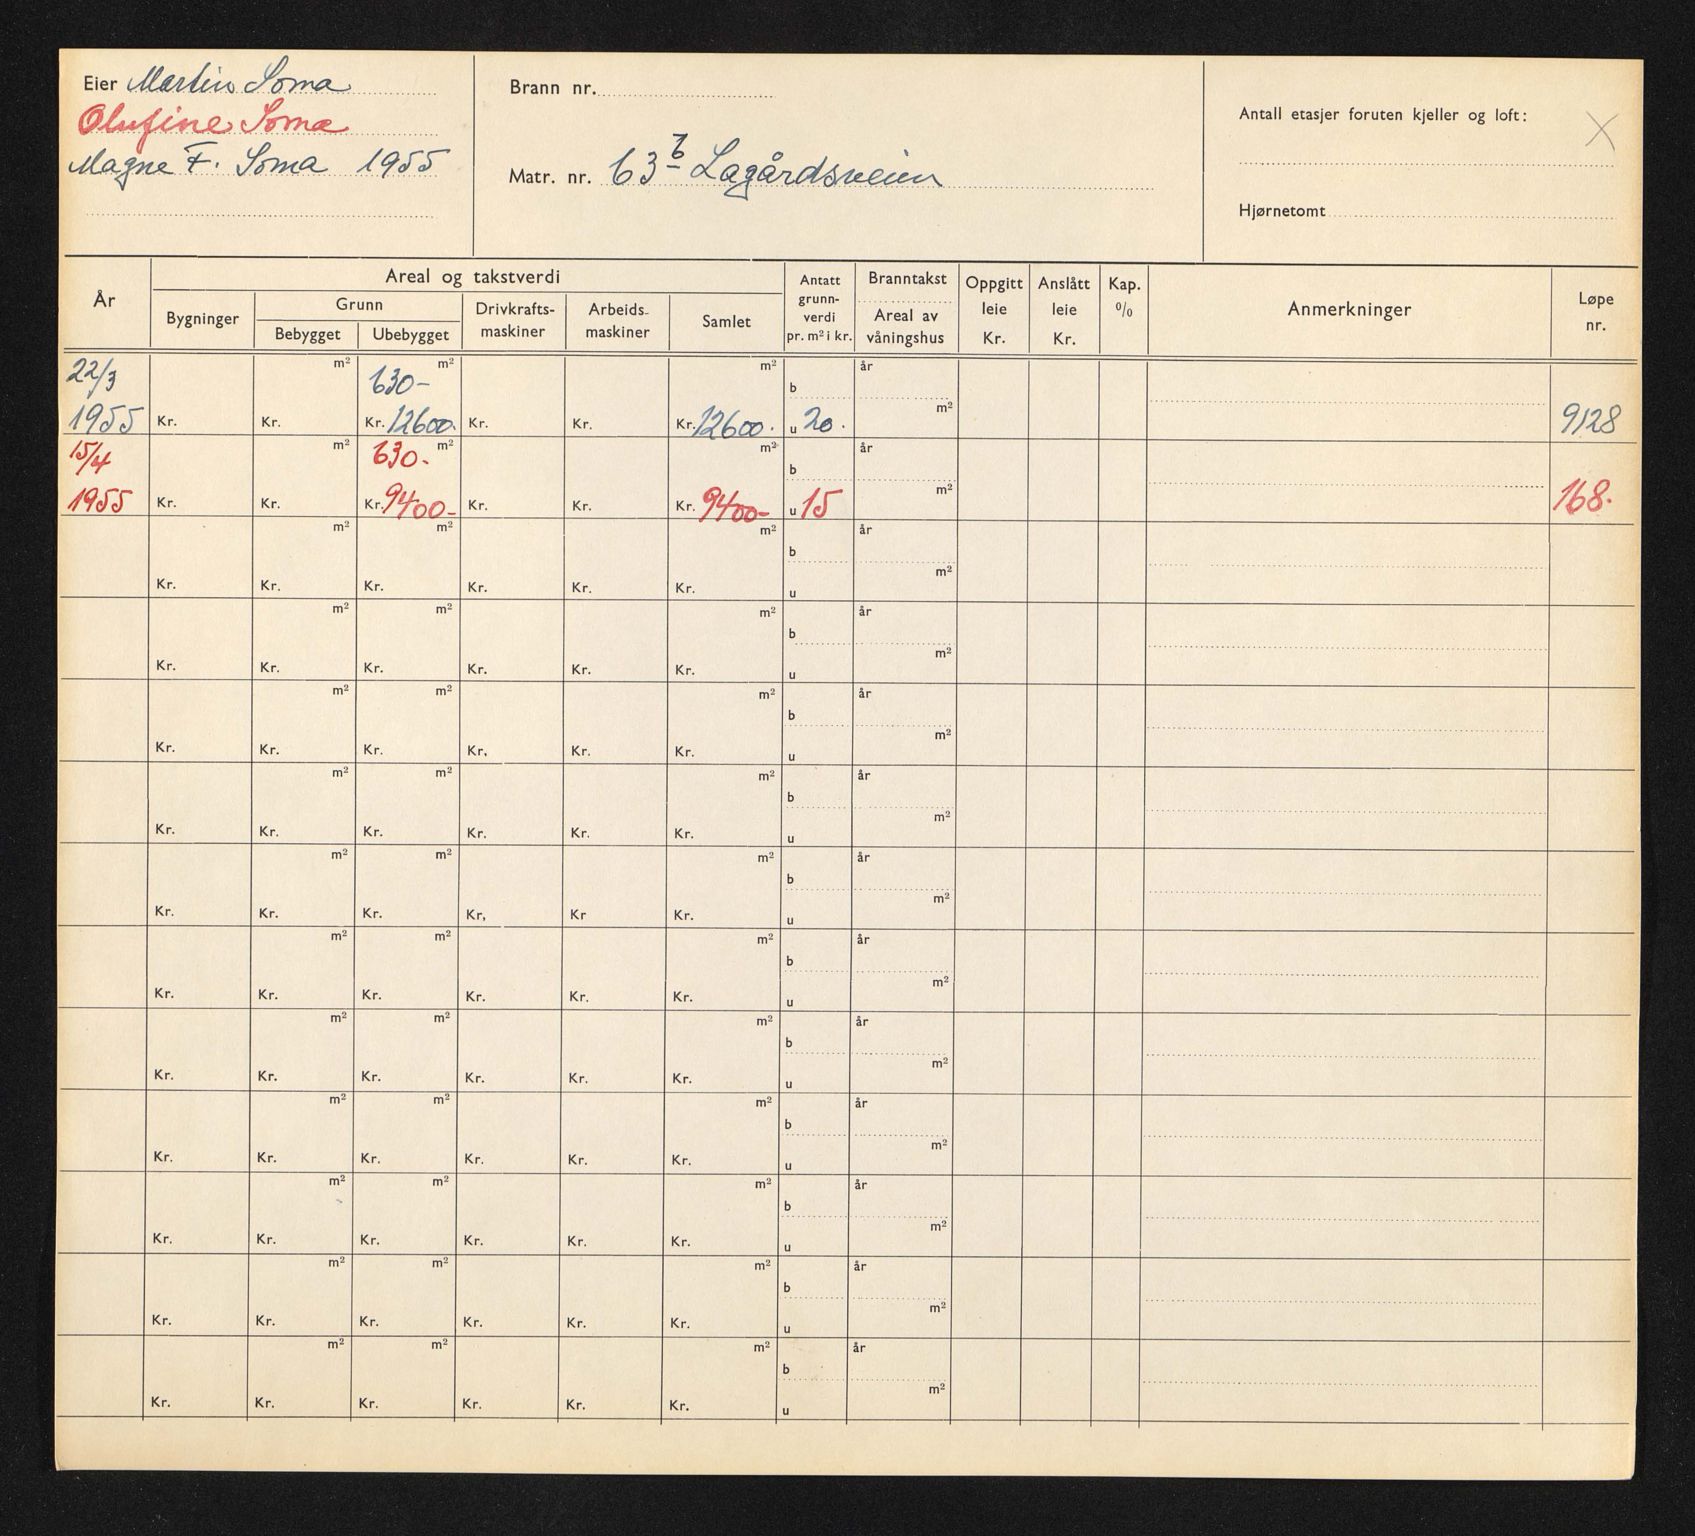 Eier Martin Soma
Olufine Soma
Magne F. Soma 1955
Brann nr.
Matr. nr. 63 b Lagårdsveien
Antall etasjer foruten kjeller og loft:
Hjørnetomt
År
Areal og takstverdi
Bygninger
Grunn
Bebygget Ubebygget
Drivkrafts-
maskiner
Arbeids-
maskiner
Samlet
Antatt
grunn-
verdi
pr. m² i kr.
Branntakst
Areal av
våningshus
Oppgitt
leie
Kr.
Anslått
leie
Kr.
Kap.
%
Anmerkninger
Løpe
nr.
22/3 m² 630- m² m² b år
1955 Kr. Kr. Kr. 12600. Kr. Kr. Kr. 12600. u 20. m² 9128
15/4 m² 630- m² m² b år
1955 Kr. Kr. Kr. 9400- Kr. Kr. Kr. 9400- u 15 m² 168.
m² m² m² b år
Kr. Kr. Kr. Kr. Kr. Kr. u m²
m² m² m² b år
Kr. Kr. Kr. Kr. Kr. Kr. u m²
m² m² m² b år
Kr. Kr. Kr. Kr. Kr. Kr. u m²
m² m² m² b år
Kr. Kr. Kr. Kr. Kr. Kr. u m²
m² m² m² b år
Kr. Kr. Kr. Kr, Kr Kr. u m²
m² m² m² b år
Kr. Kr. Kr. Kr. Kr. Kr. u m²
m² m² m² b år
Kr. Kr. Kr. Kr. Kr. Kr. u m²
m² m² m² b år
Kr. Kr. Kr. Kr. Kr. Kr. u m²
m² m² m² b år
Kr. Kr. Kr. Kr. Kr. Kr. u m²
m² m² m² b år
Kr. Kr. Kr. Kr. Kr. Kr. u m²
m² m² m² b år
Kr. Kr. Kr. Kr. Kr. Kr. u m²